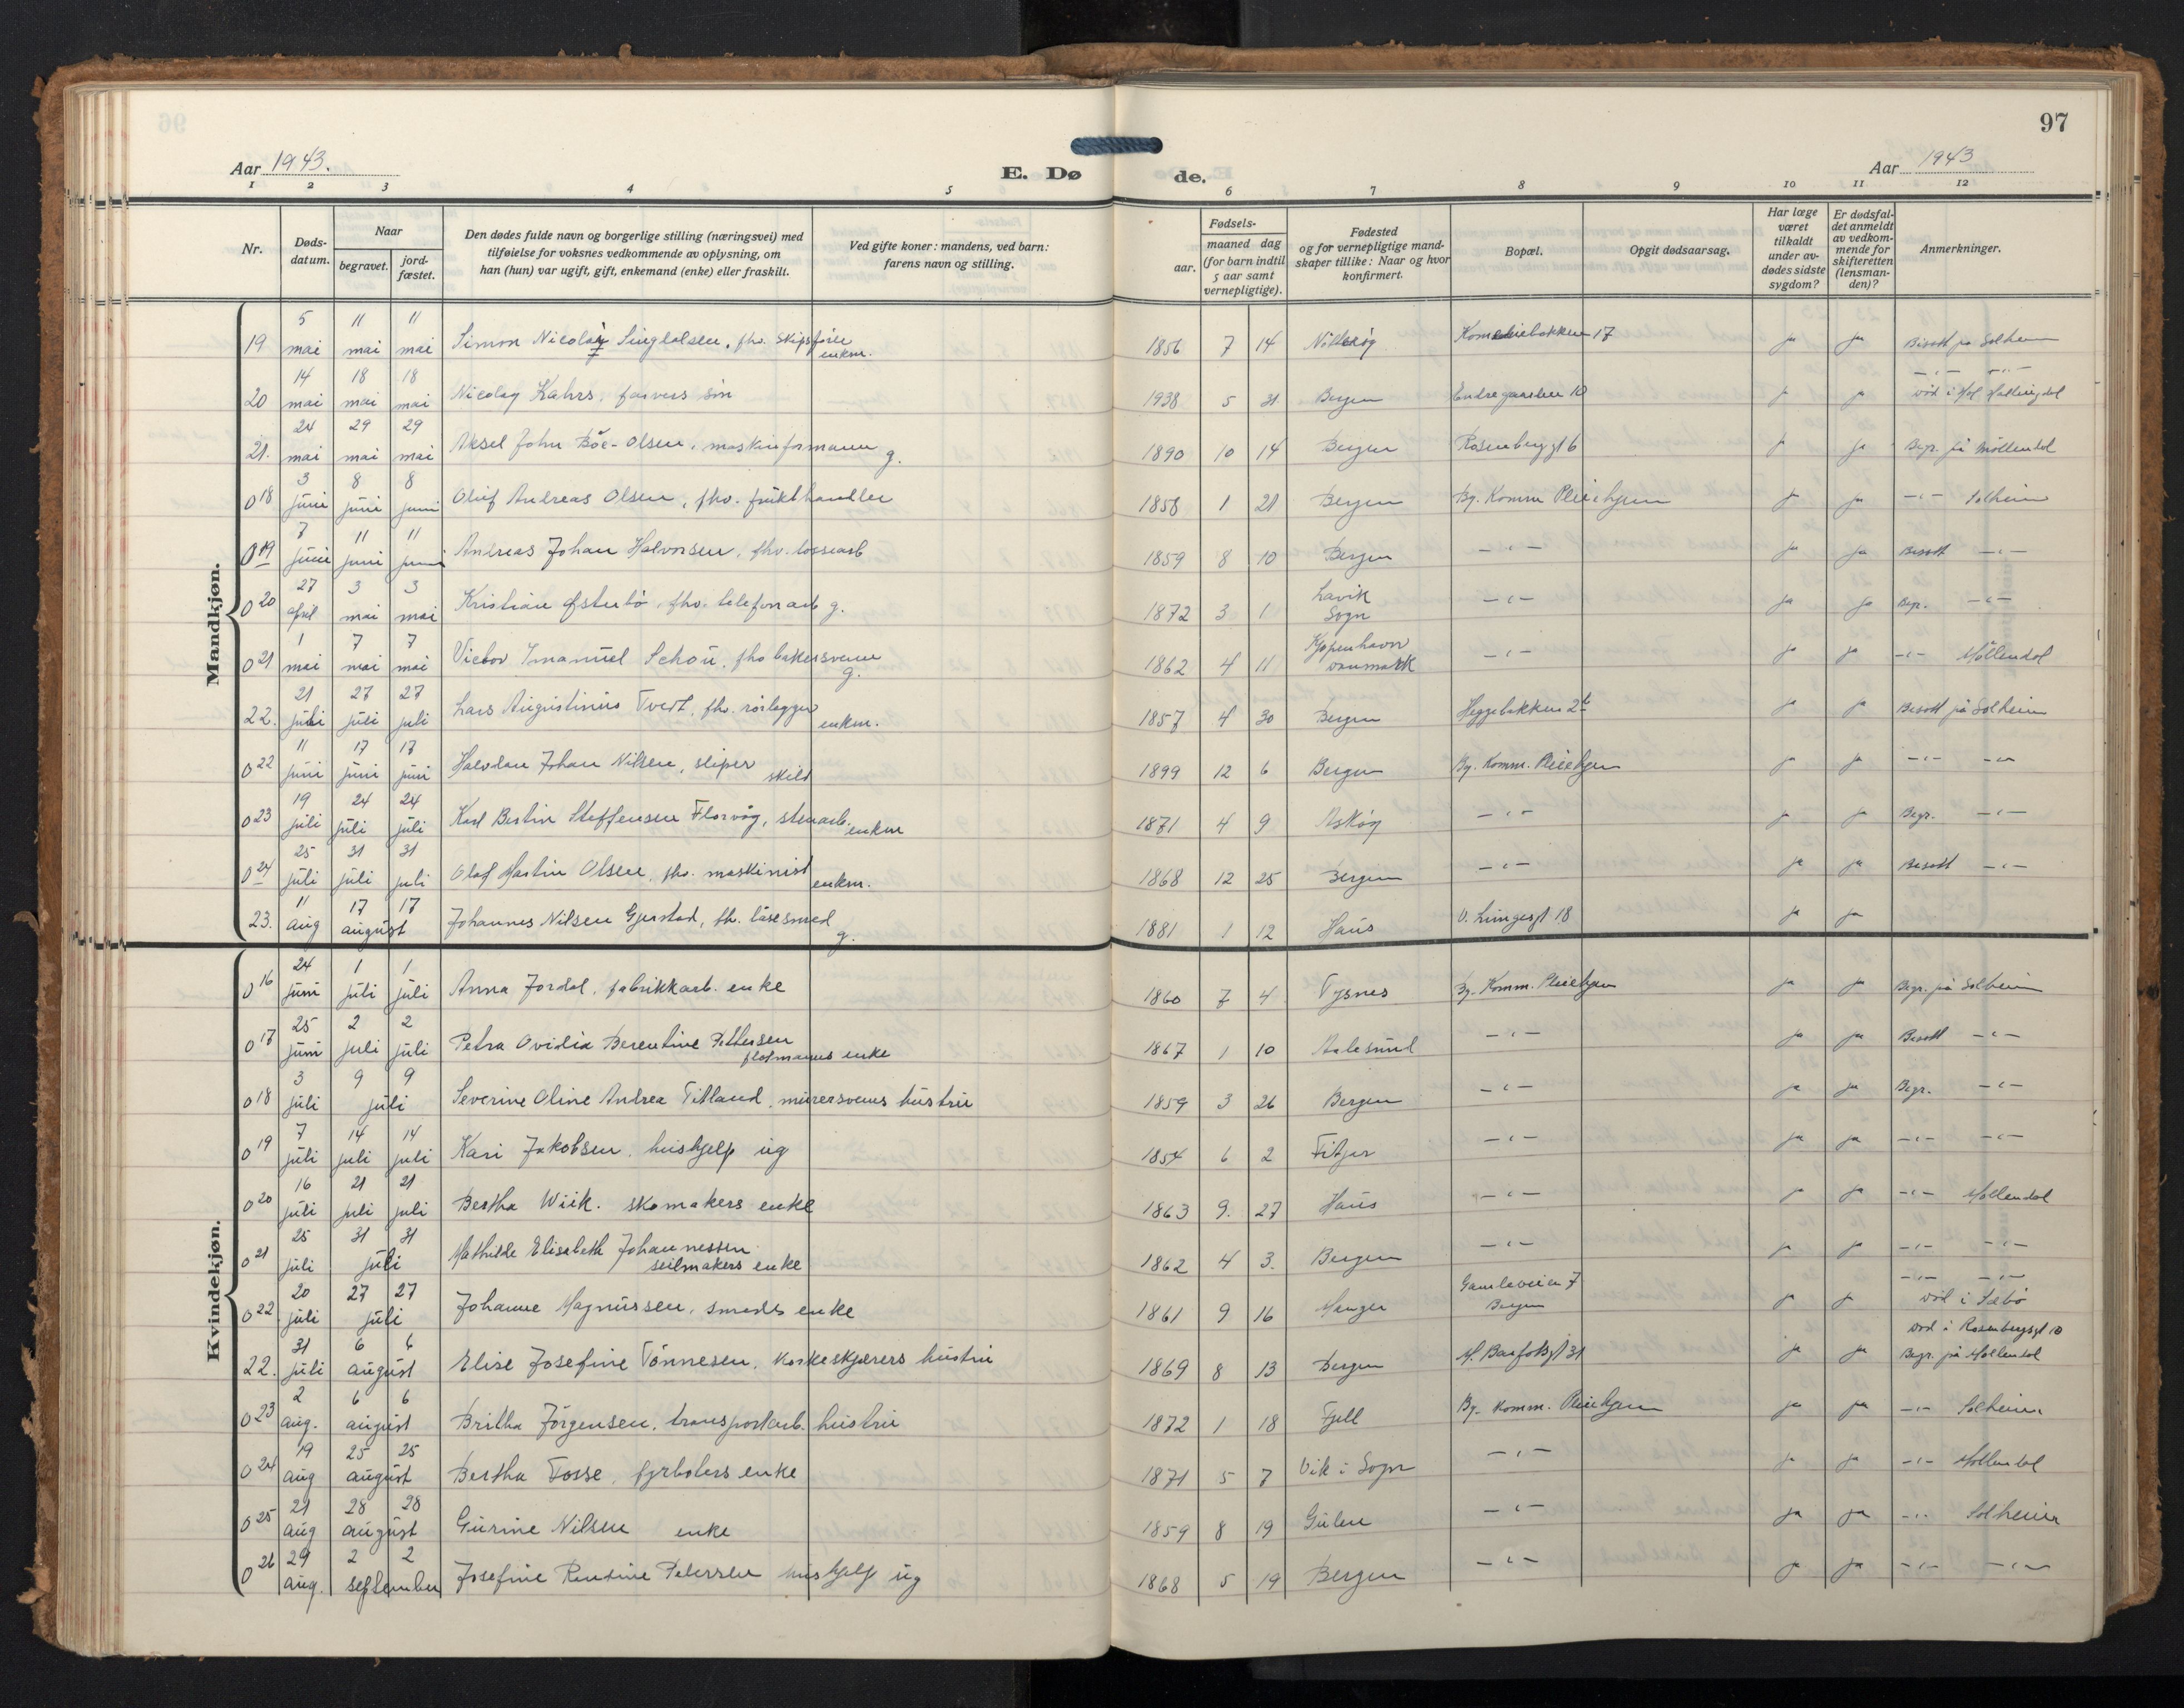 96
97
Aar 1943.
E. Dø
de.
Aar 1943
1 2 3 4 5 6 7 8 9 10 11 12
Nr.
Døds-datum.
Naar
begravet.
jord-fæstet.
Den dødes fulde navn og borgerlige stilling (næringsvei) med
tilføielse for voksnes vedkommende av oplysning, om
han (hun) var ugift, gift, enkemand (enke) eller fraskilt.
Ved gifte koner: mandens, ved barn:
farens navn og stilling.
Fødsels-
aar.
maaned dag
(for barn indtil
5 aar samt
vernepligtige).
Fødested
og for vernepligtige mand-
skaper tillike: Naar og hvor
konfirmert.
Bopæl.
Opgit dødsaarsag.
Har læge
været
tilkaldt
under av-
dødes sidste
sygdom?
Er dødsfal-
det anmeldt
av vedkom-
mende for
skifteretten
(lensman-
den)?
Anmerkninger.
Mandkjøn.
19 5 mai 11 mai 11 mai Simon Nicolai fhv. skipsfører enkm. 1856 7 14 17 ja ja Bisatt på Solheim
20 14 mai 18 mai 18 mai Nicolay Kahrs, farvers søn 1938 5 31 Bergen Endregaarden 10 ja ja -"- -"- død i
21. 24 mai 29 mai 29 mai Aksel John Böe-Olsen, maskinformann g. 1890 10 14 Bergen Rosenberggt 6 ja ja Begr. på Möllendal
018 3 juni 8 juni 8 juni Oluf Andreas Olsen, fhv. frukthandler 1858 1 21 Bergen Bg. Komm Pleiehjem ja ja -"- Solheim
019 7 juni 11 juni 11 juni Andreas Johan Halvorsen, fhv. lossearb 1859 8 10 Bergen -"- ja ja Bisatt -"-
020 27 april 3 mai 3 mai Kristian Østerbö, fhv. telefonarb g. 1872 3 1 Lavik Sogn -"- ja ja Begr. -"-
021 1 mai 7 mai 7 mai Victor Imanuel Schou, fhv bakersvenn g. 1862 4 11 Kjøpenhavn Danmark -"- ja ja -"- Möllendal
22. 21 juli 27 juli 27 juli Lars Augustinius Tvedt, fhv. rörlegger enkm. 1857 4 30 Bergen Heggebakken 2 ja ja Bisatt på Solheim
022 11 juni 17 juni 17 juni Halvdan Johan Nilsen, sliper skilt 1899 12 6 Bergen Bg. Komm. Pleiehjem ja ja -"- -"-
023 19 juli 24 juli 24 juli Karl Bertin Steffensen Florvåg, stenarb. enkm 1871 4 9 Askøy -"- ja ja Begr. -"-
024 25 juli 31 juli 31 juli Olaf Martin Olsen, fhv. maskinist enkm. 1868 12 25 Bergen -"- ja ja Bisatt -"-
23. 11 aug 17 17 august Johannes Nilsen Gjerstad, fh. låsesmed g. 1881 1 12 Haus V. Lungegt 18 ja ja
Kvindekjøn.
016 24 juni 1 juli 1 juli Anna Jordal, fabrikkarb. enke 1860 7 4 Tysnes Bg. Komm. Pleiehjem ja ja Begr. på Solheim
017 25 juni 2 juli 2 juli Petra Ovidia Berentine Pettersen enke 1867 1 10 Aalesund -"- ja ja Bisatt -"-
018 3 juli 9 9 juli Severine Oline Andrea Titland, murersvens hustru 1859 3 26 Bergen -"- ja ja Begr. -"-
019 7 juli 14 juli 14 juli Kari Jakobsen, hushjelp ug 1854 6 2 Fitjar -"- ja ja -"- -"-
020 16 juli 21 juli 21 juli Bertha Wiik. skomakers enke 1863 9. 27 Haus -"- ja ja -"- Möllendal
021 25 juli 31 31 juli Mathilde Elisabeth Johannessen seilmakers enke 1862 4 3. Bergen -"- ja ja -"- -"-
022 20 juli 27 27 juli Johanne Magnussen, smeds enke 1861 9 16 Manger Gamleveien 7 Bergen ja ja -"- -"- död i Sæbö
22. 31 juli 6 6 august Elise Josefine Tönnesen, korkeskjærers hustru 1869 8 13 Bergen M. Barfotsgt 31 ja ja död i Rosenbergsgt 10 Begr. på Möllendal
023 2 aug. 6 6 august Britha Jörgensen, transportarb. hustru 1872 1 18 Fjell Bg. Komm. Pleiehjem ja ja -"- Solheim
024 19 aug 25 25 august Bertha Fosse, fyrböters enke 1871 5 7 Vik i Sogn -"- ja ja -"- Möllendal
025 21 aug 28 28 august Gurine Nilsen enke 1859 8 19 Gulen -"- ja ja -"- Solheim
026 29 aug. 2 2 september Josefine Rentine Petersen hushjelp ug 1868 5 19 Bergen -"- ja ja -"- -"-